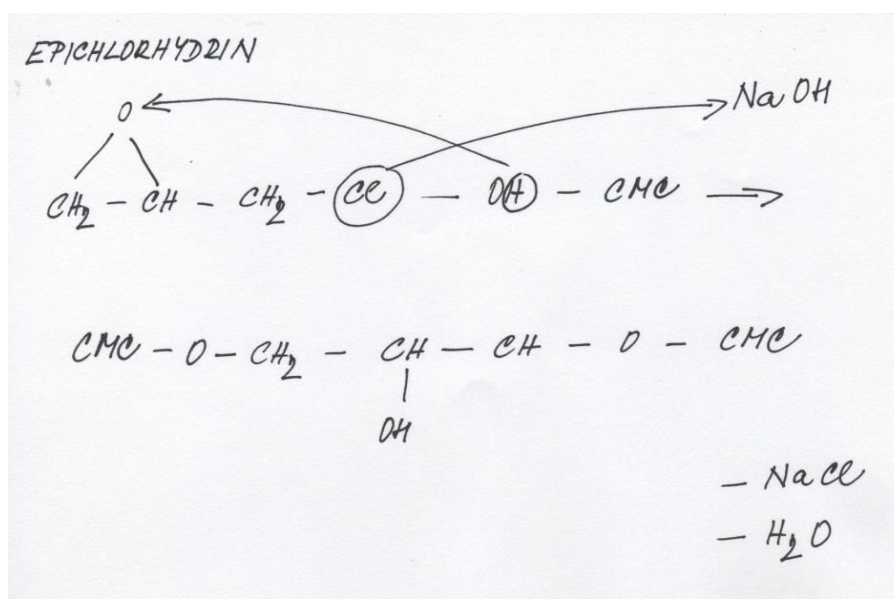 EPICHLORHYDRIN
O
NaOH
CH2 - CH - CH2 - Cl — OH - CMC →
CMC - O - CH2 - CH - CH - O - CMC
OH
- NaCl
- H2O